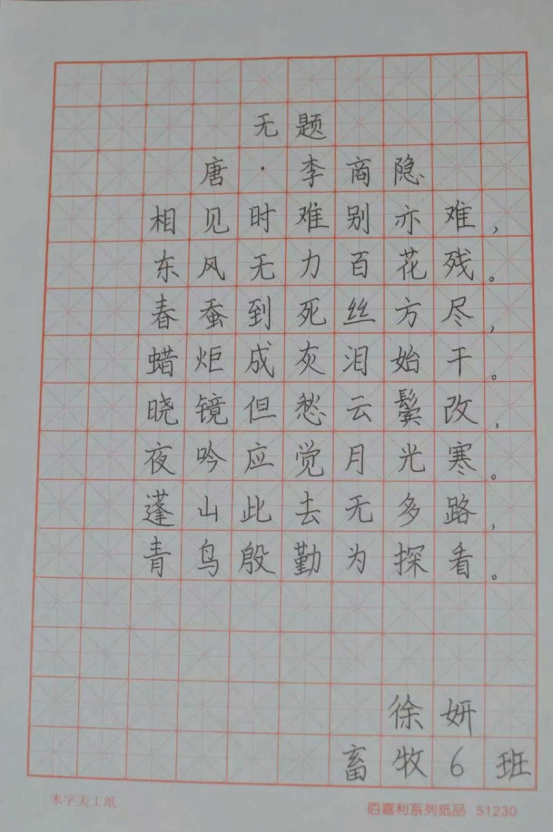 无题
唐·李商隐
相见时难别亦难，
东风无力百花残。
春蚕到死丝方尽，
蜡炬成灰泪始干。
晓镜但愁云鬓改，
夜吟应觉月光寒。
蓬山此去无多路，
青鸟殷勤为探看。
徐妍
畜牧6班
米字美工纸
佰嘉利系列纸品 51230